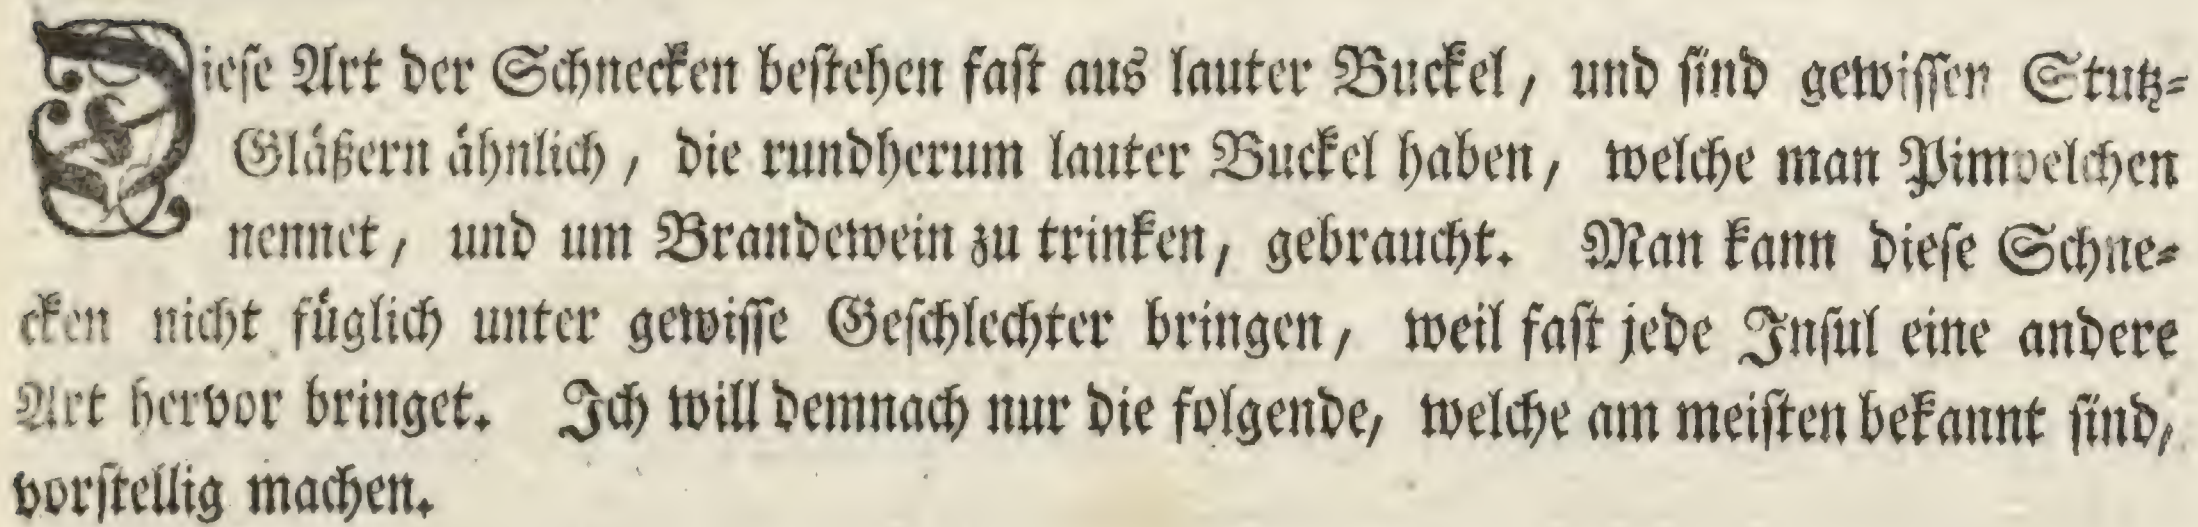 Dieſe Art der Schnecken beſtehen faſt aus lauter Buckel, und ſind gewiſſen Stutz⸗
Gläßern ähnlich, die rundherum lauter Buckel haben, welche man Pimpelchen
nennet, und um Brandewein zu trinken, gebraucht. Man kann dieſe Schne⸗
cken nicht füglich unter gewiſſe Geſchlechter bringen, weil faſt jede Inſul eine andere
Art hervor bringet. Ich will demnach nur die folgende, welche am meiſten bekannt ſind,
vorſtellig machen.